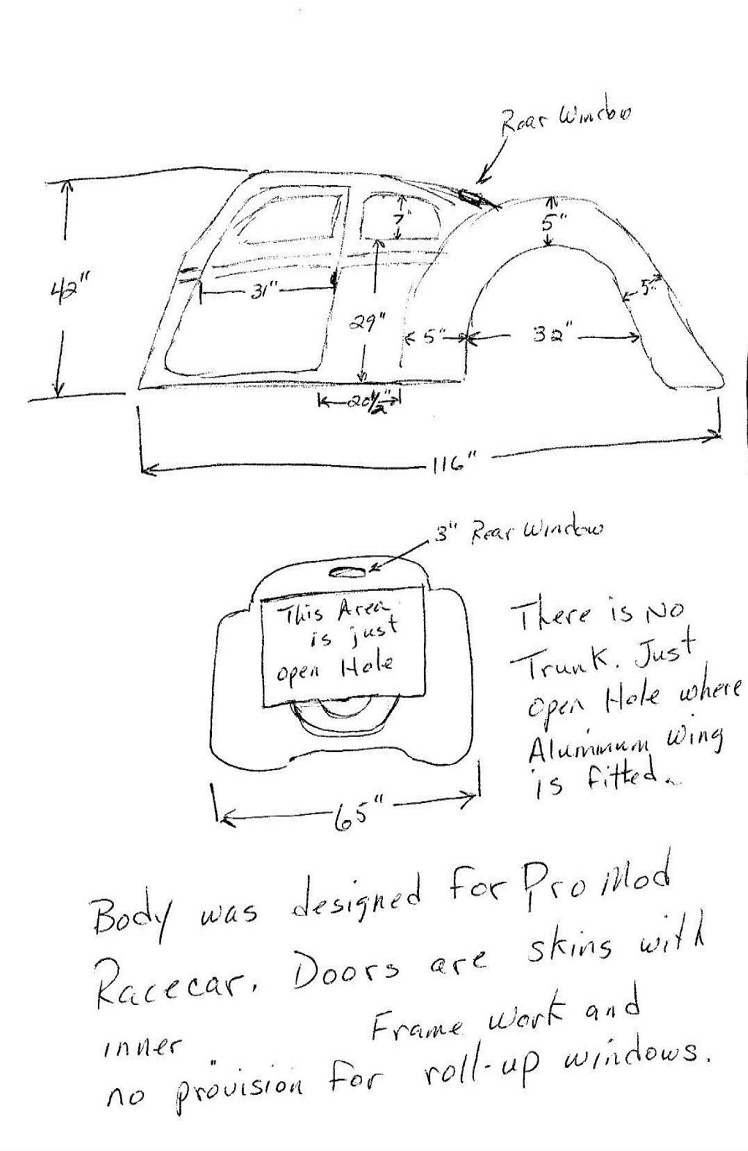 Rear Window
7"
5"
42"
31"
5"
29"
5"
32"
20½"
116"
3" Rear Window
This Area
is just
open Hole
There is No
Trunk. Just
open Hole where
Aluminum Wing
is fitted.
65"
Body was designed for Pro Mod
Racecar. Doors are skins with
inner Frame work and
no provision for roll-up windows.